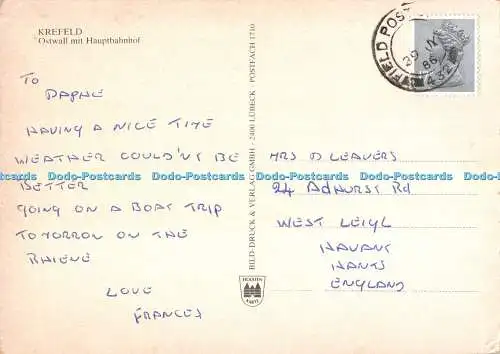 KREFELD
Ostwall mit Hauptbahnhof
TO
DAPHNE
HAVING A NICE TIME
WEATHER COULDN'T BE
BETTER
GOING ON A BOAT TRIP
TOMORROW ON THE
RHIENE
LOVE
FRANCES
BILD-DRUCK & VERLAG GMBH · 2400 LÜBECK · POSTFACH 1710
HOLSTEN
KARTE
FIELD POST
29 IX
86
432
MRS D LEAVERS
24 ADHURST Rd
WEST LEIGH
HAVANT
HANTS
ENGLAND
Dodo-Postcards Dodo-Postcards Dodo-Postcards Dodo-Postcards Dodo-Postcards